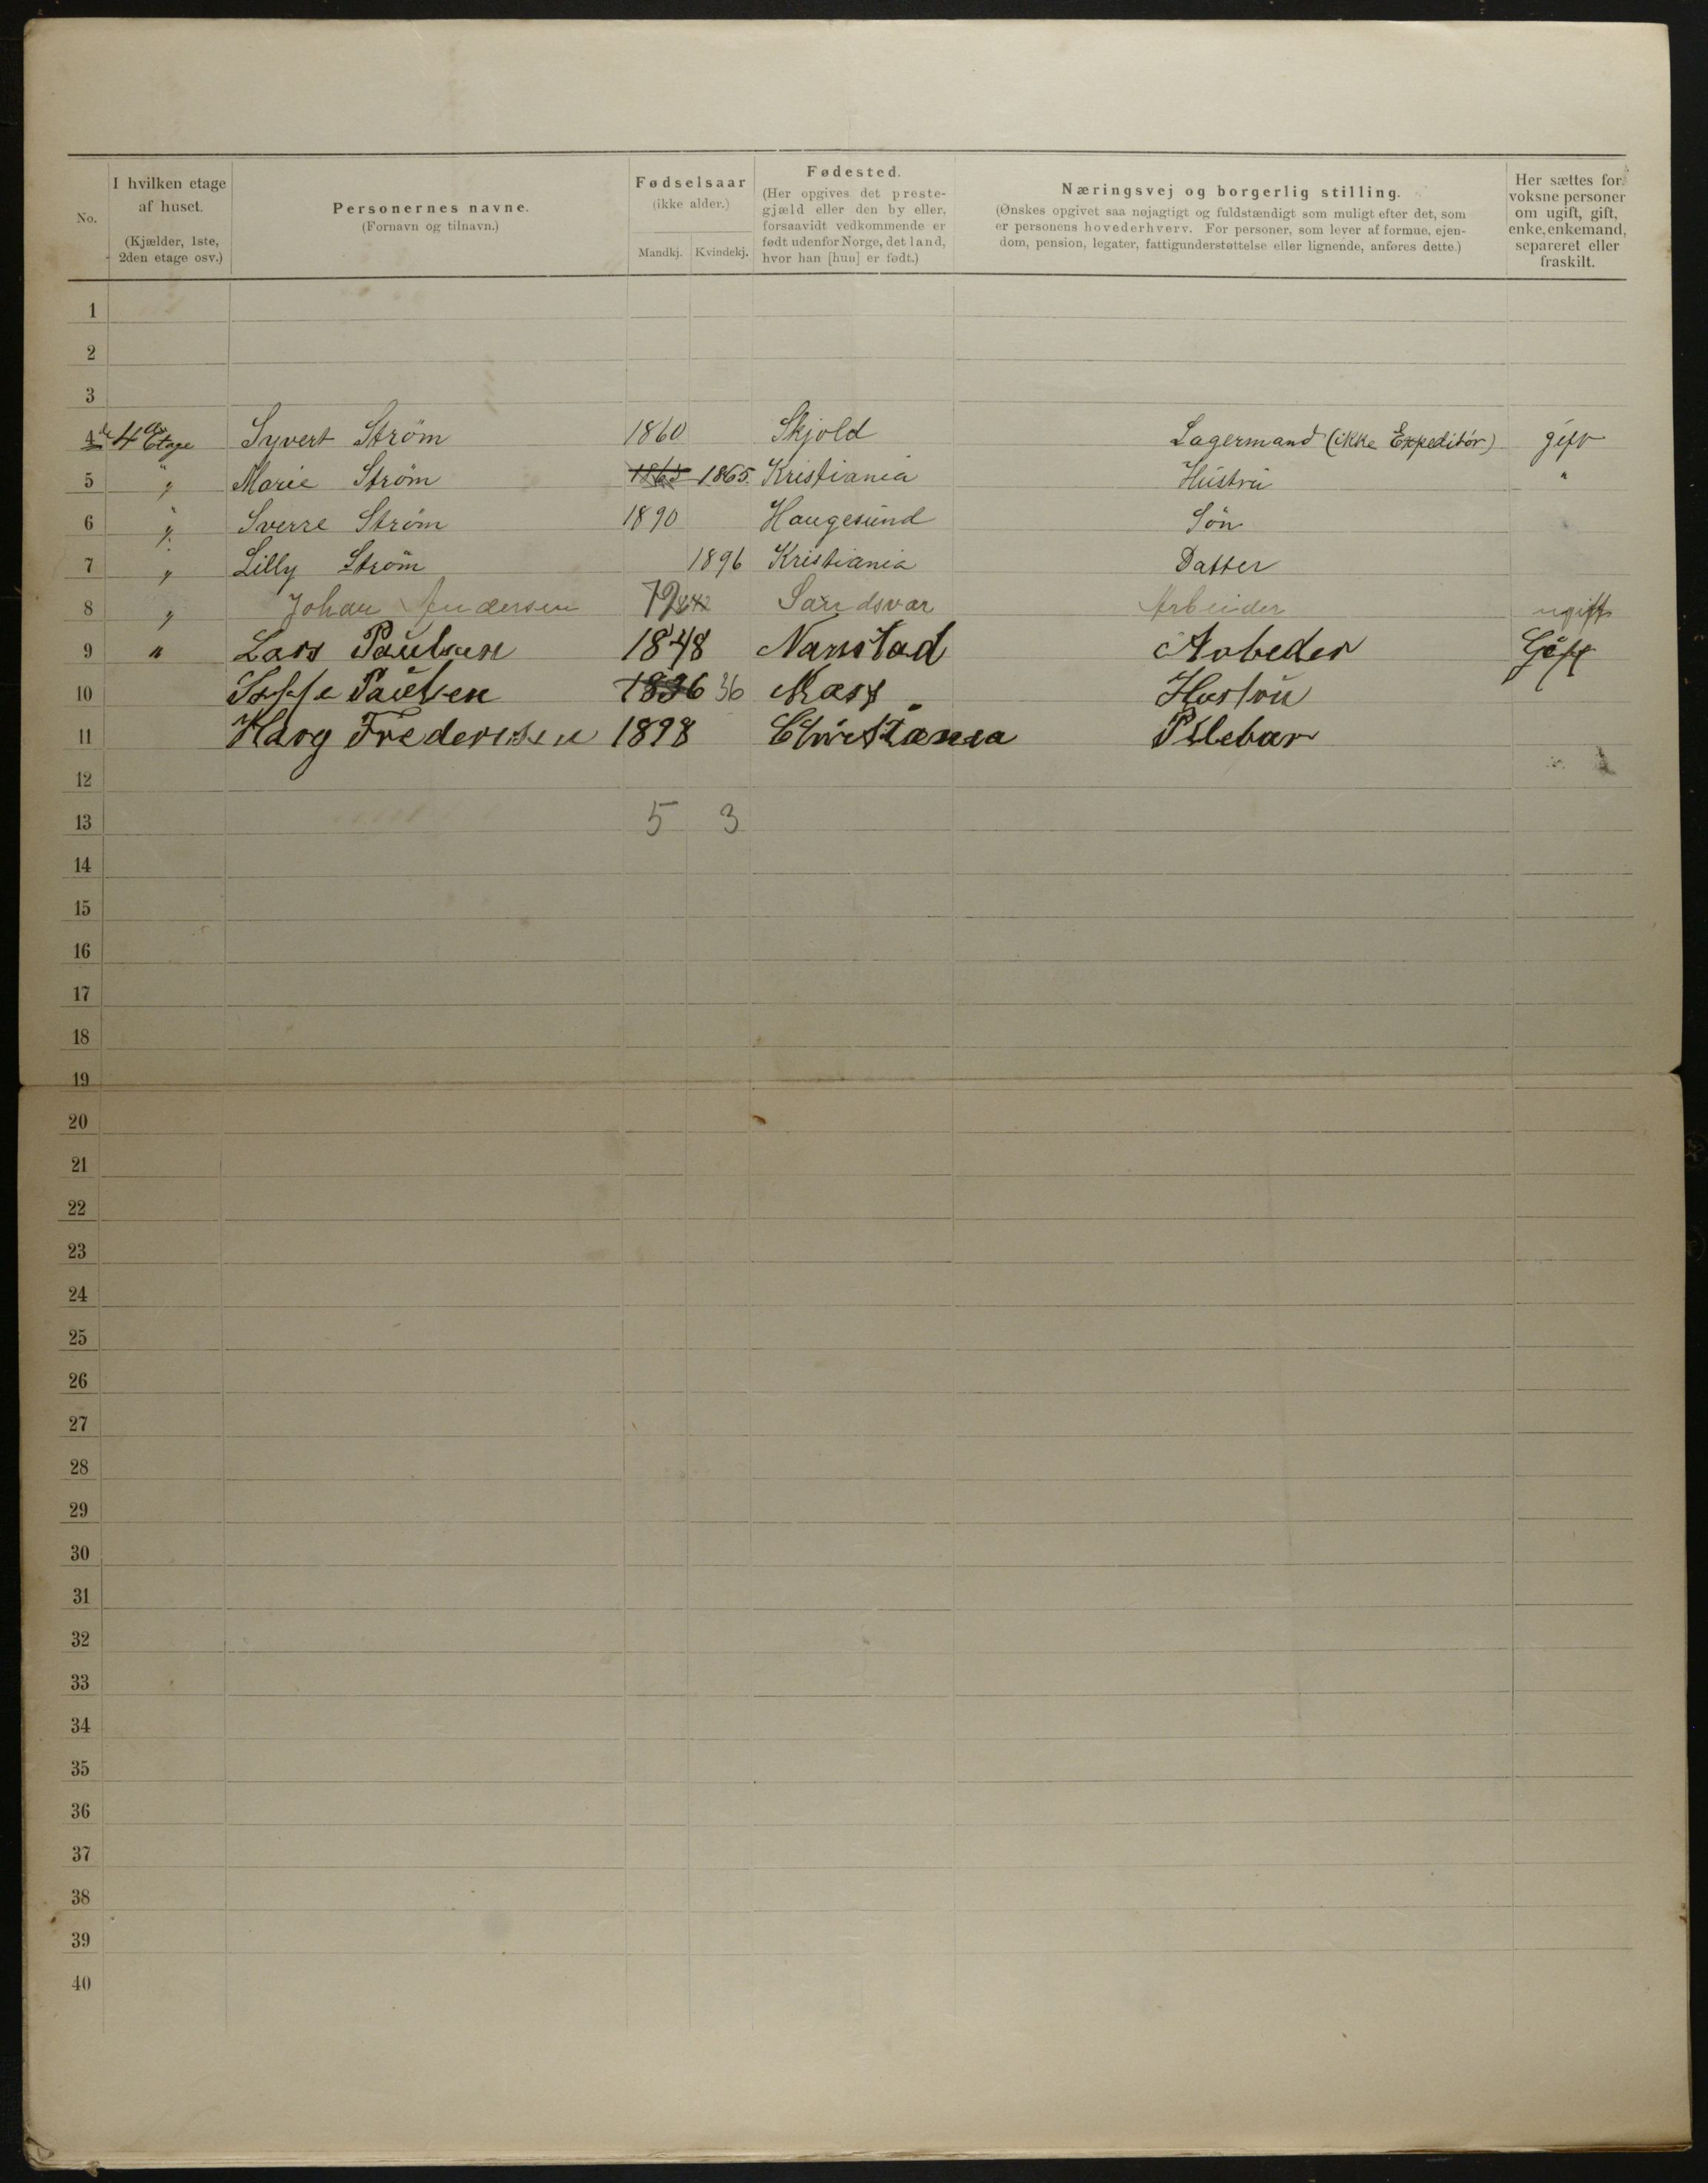 No. | I hvilken etage af huset. (Kjælder, 1ste, 2den etage osv.) | Personernes navne. (Fornavn og tilnavn.) | Fødselsaar (ikke alder.) Mandkj. Kvindekj. | Fødested. (Her opgives det prestegjæld eller den by eller, forsaavidt vedkommende er født udenfor Norge, det land, hvor han [hun] er født.) | Næringsvej og borgerlig stilling. (Ønskes opgivet saa nøjagtigt og fuldstændigt som muligt efter det, som er personens hovederhverv. For personer, som lever af formue, ejendom, pension, legater, fattigunderstøttelse eller lignende, anføres dette.) | Her sættes for voksne personer om ugift, gift, enke, enkemand, separeret eller fraskilt.
1
2
3
4 4de Etage Syvert Ström 1860 Skjold Lagermand (ikke Expeditör) gift
5 " Marie Ström 1865 1865. Kristiania Hustru "
6 " Sverre Ström 1890 Haugesund Sön
7 " Lilly Ström 1896 Kristiania Datter
8 " Johan Andersen Sandsvær Arbeider ugift
9 " Lars Paulsen 1848 Nanstad Arbeder Gift
10 Paulsen 1836 36 Hustru
11 Harg Frederisen 1898 Christiania Plebar
12
13 5 3
14
15
16
17
18
19
20
21
22
23
24
25
26
27
28
29
30
31
32
33
34
35
36
37
38
39
40